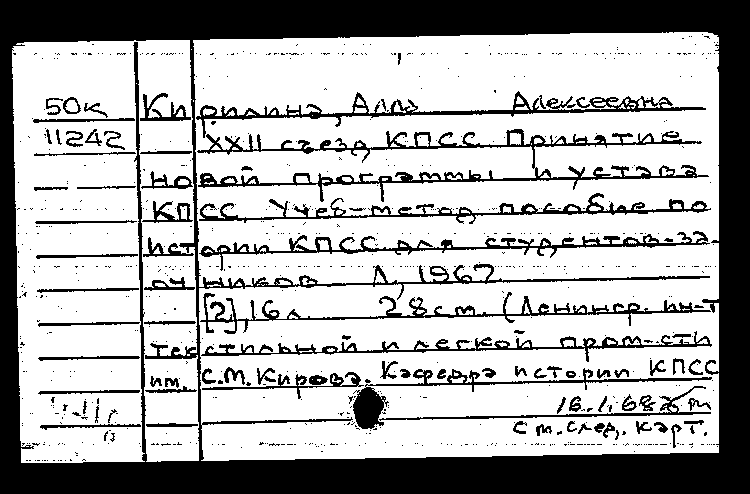 50к Кирилина, Алла Алексеевна
11242 XXII съезд КПСС. Принятие
новой программы и устава
КПСС. Учеб-метод. пособие по
истории КПСС для студентов-за-
очников Л., 1967
[2], 16 л. 28 см. (Ленингр. ин-т
текстильной и легкой пром-сти
им. С.М. Кирова. Кафедра истории КПСС
16.1.68
См. след. карт.